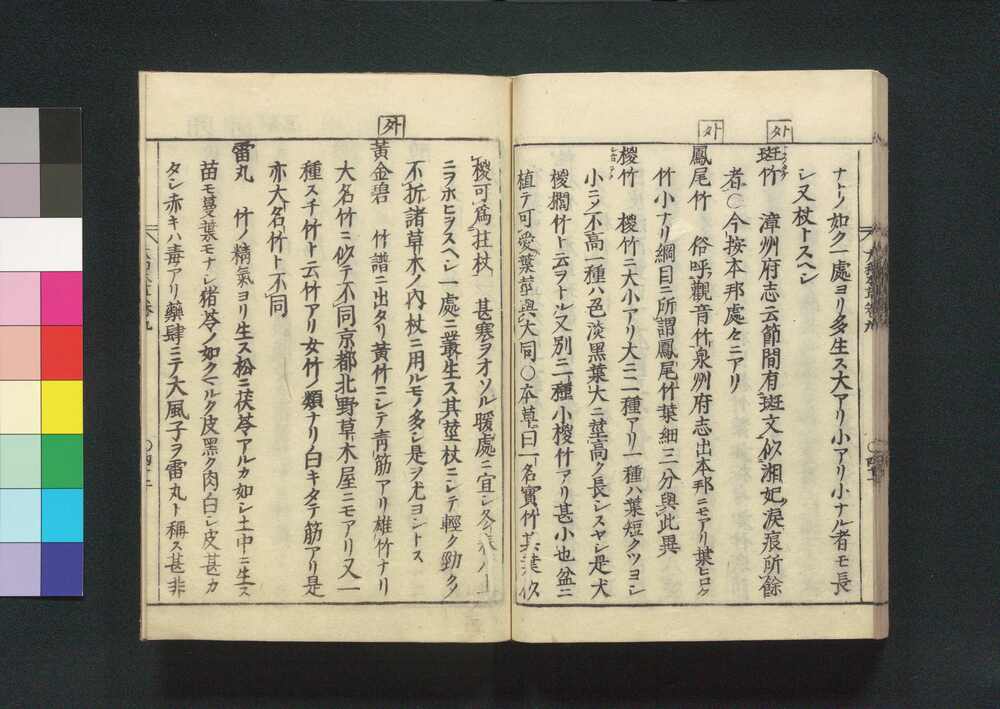 ナトノ如ク一處ヨリ多生ス大アリ小アリ小ナル者モ長
シ又杖トスヘシ
外
斑竹 漳州府志云節間有斑文似湘妃淚痕所餘
者○今按本邦處々ニアリ
外
鳳尾竹 俗呼觀音竹泉州府志出本邦ニモアリ葉ヒロク
竹小ナリ綱目ニ所謂鳳尾竹葉細三分與此異
椶竹 椶竹ニ大小アリ大ニ二種アリ一種ハ葉短クツヨシ
小ニノ不高一種ハ色淡黑葉大ニ莖高ク長シスヤシ是犬
椶櫚竹ト云ヲトル又別ニ一種小椶竹アリ甚小也盆ニ
植テ可愛葉莖與大同○本草曰一名實竹其葉似
椶可爲拄杖 甚寒ヲオソル暖處ニ宜シ冬
ニヲホヒヲスヘシ一處ニ叢生ス其莖杖ニシテ輕ク勁クノ
不折諸草木ノ內杖ニ用ルモノ多シ是ヲ尤ヨシトス
外
黃金碧 竹譜ニ出タリ黃竹ニシテ靑筋アリ雄竹ナリ
大名竹ニ似テ不同京都北野草木屋ニモアリ又一
種スチ竹ト云竹アリ女竹ノ類ナリ白キタテ筋アリ是
亦大名竹ト不同
雷丸 竹ノ精氣ヨリ生ス松ニ茯苓アルカ如シ土中ニ生ス
苗モ蔓葉モナシ猪苓ノ如クマルク皮黑ク肉白シ皮甚カ
タシ赤キハ毒アリ藥肆ニテ大風子ヲ雷丸ト稱ス甚非